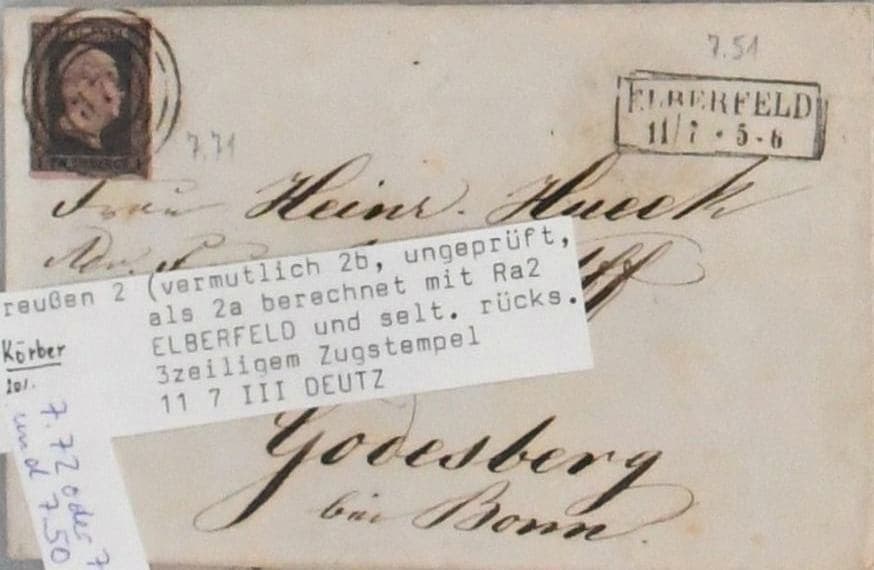 7.51
ELBERFELD
11/7 • 5-6
7.71
1 SILBERGR. 1
Frau Heinr. Hueck
Adr.
reußen 2 (vermutlich 2b, ungeprüft,
als 2a berechnet mit Ra2
ELBERFELD und selt. rücks.
3zeiligem Zugstempel
11 7 III DEUTZ
Körber
7.72 oder 7
und 7.50
Godesberg
bei Bonn.